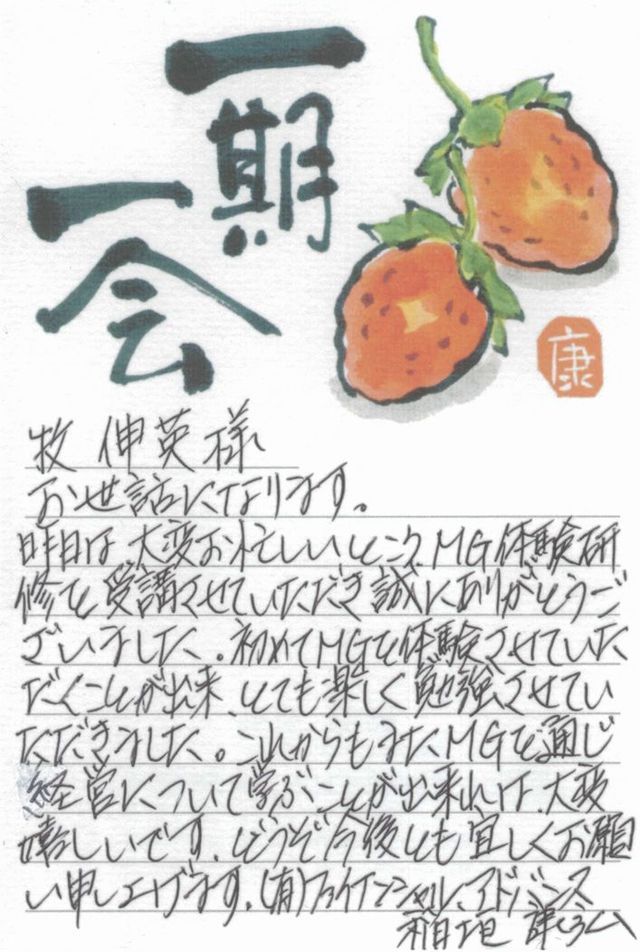 一期
一会
康
牧 伸英様
お世話になります。
昨日は、大変お忙しいところ、MG体験研
修を受講させていただき誠にありがとうご
ざいました。初めてMGを体験させていた
だくことが出来、とても楽しく勉強させてい
ただきました。これからもまたMGを通じ
経営について学ぶことが出来れば、大変
嬉しいです。どうぞ今後とも宜しくお願
い申し上げます。(有)ファイナンシャルアドバンス
稲垣